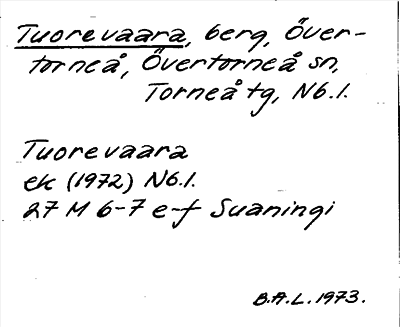 Tuorevaara, berg, Över-
torneå, Övertorneå sn,
Torneå tg, Nb.l.
Tuorevaara
ek (1972) Nb.l.
27 M 6-7 e-f Suaningi
B.A.L. 1973.